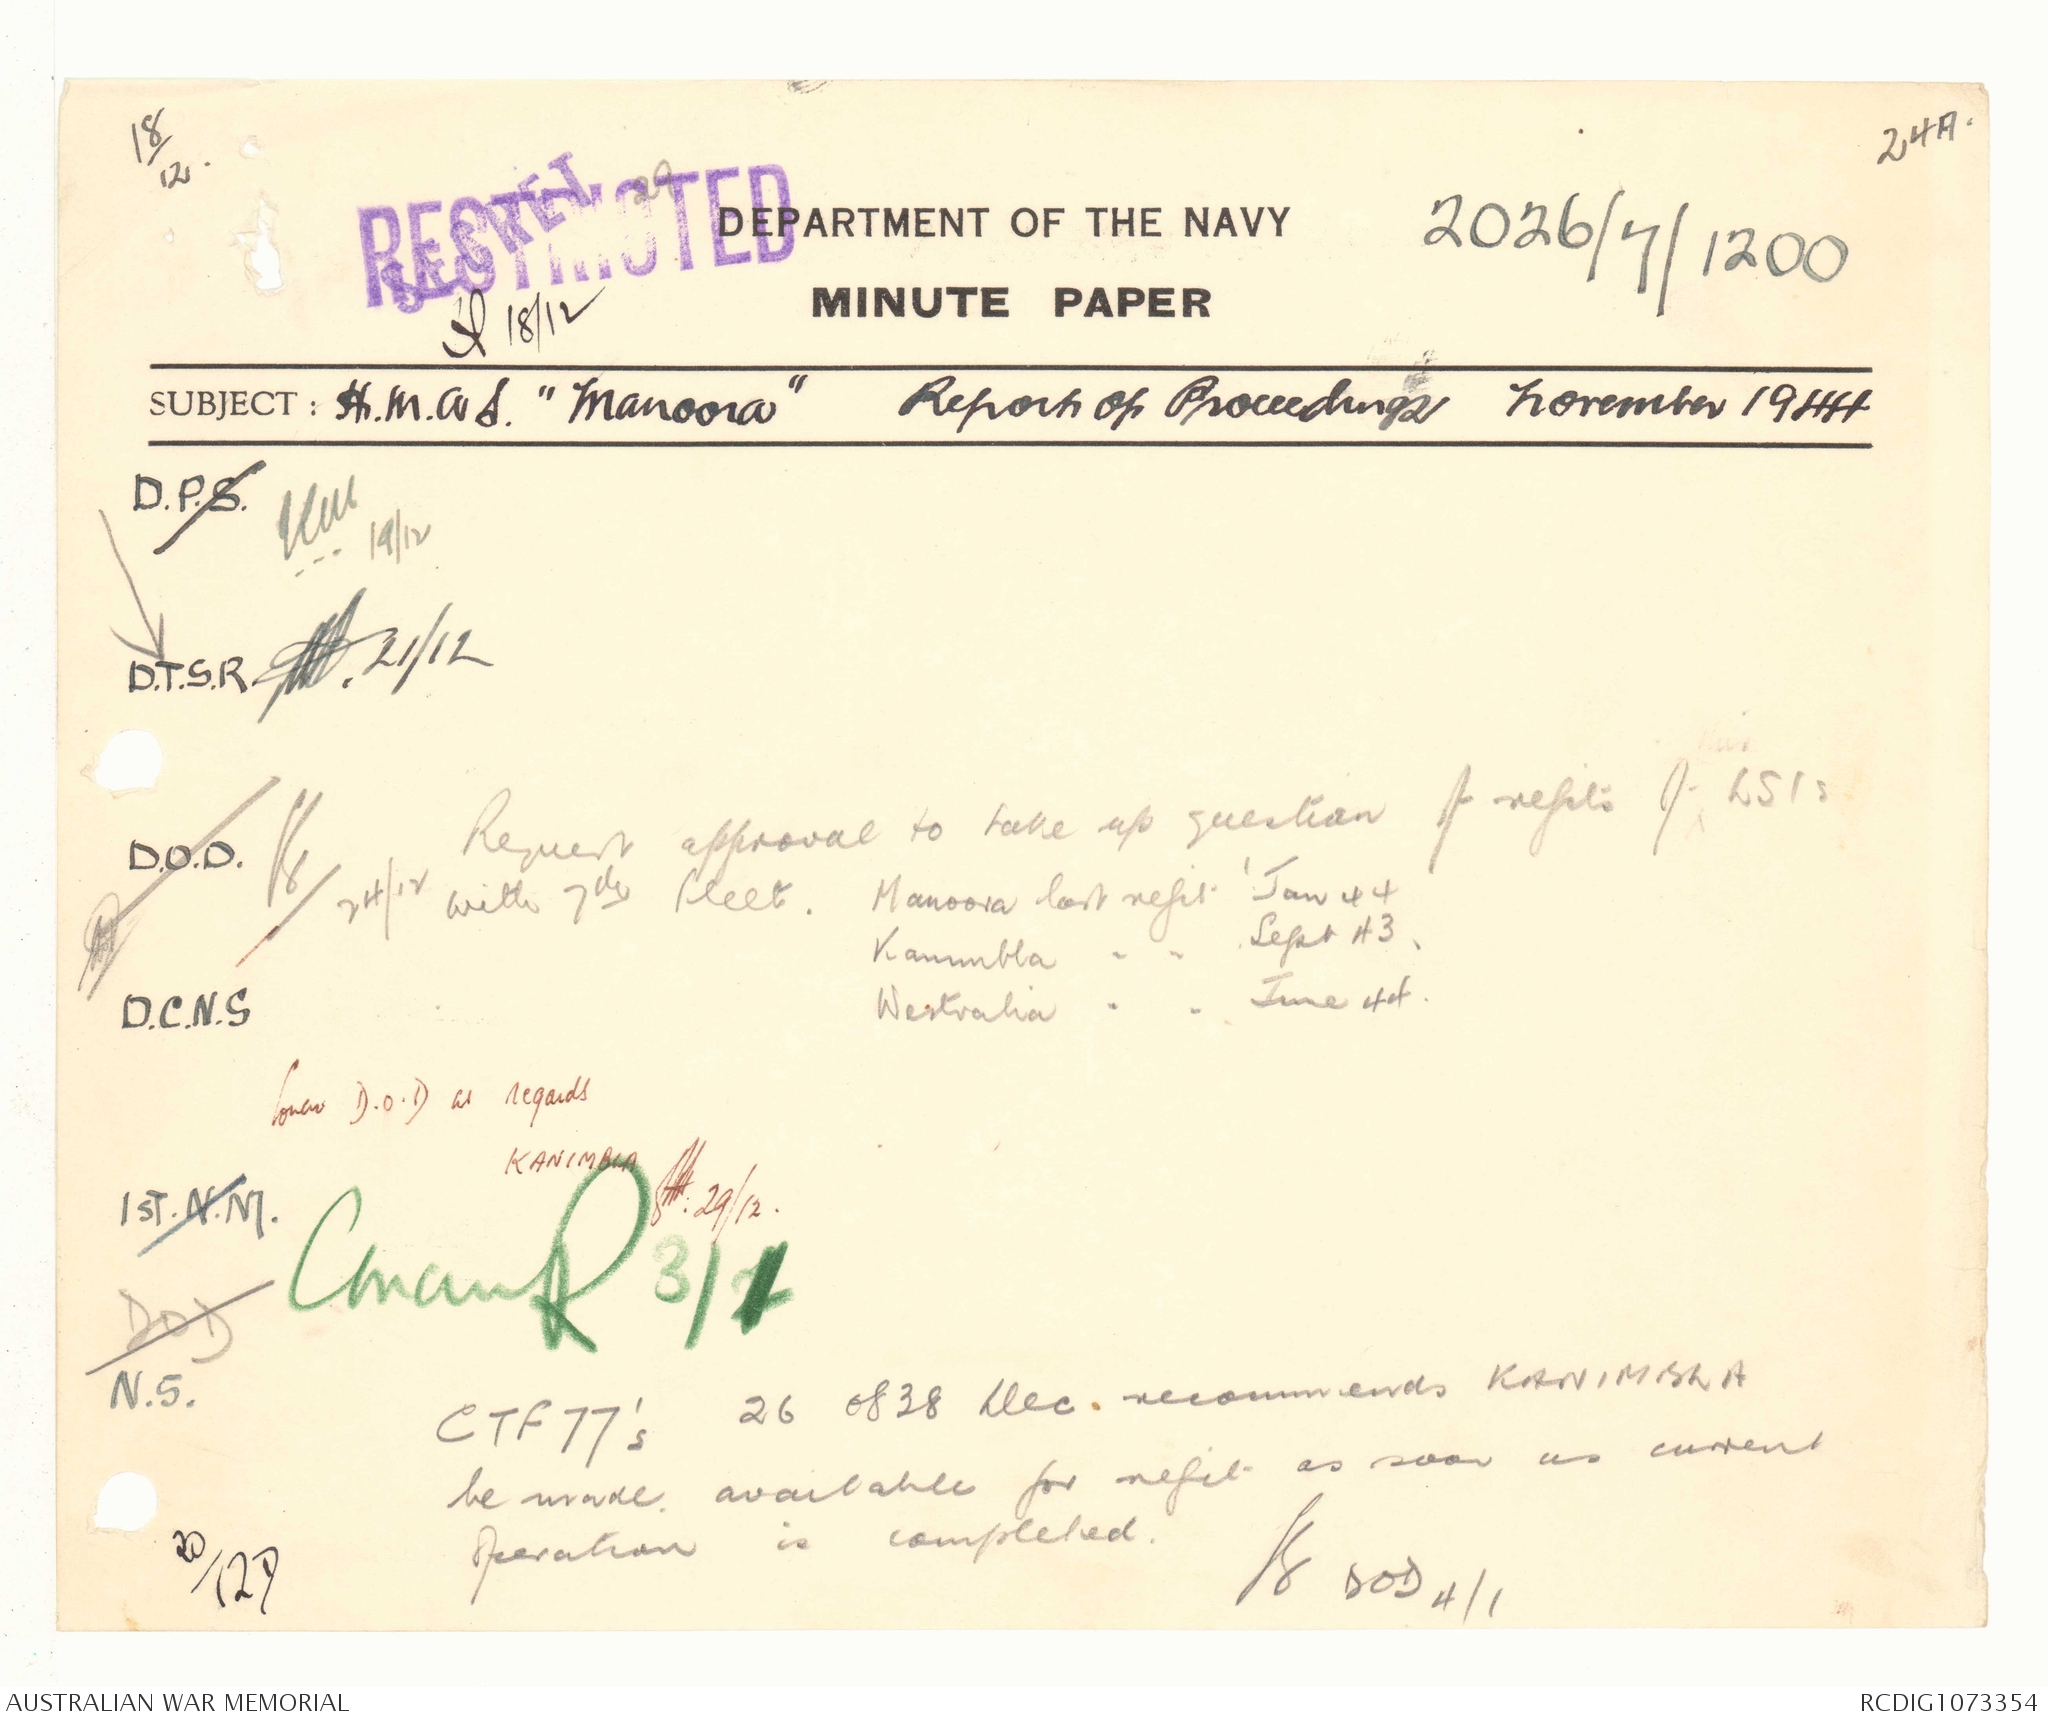 18/12.
24A.
RESTRICTED
SECRET
29
DEPARTMENT OF THE NAVY
2026/7/1200
MINUTE PAPER
18/12
SUBJECT : H.M.A.S. "Manoora" Report of Proceedings November 1944
D.P.S.
19/12
D.T.S.R. 21/12
D.O.D. Request approval to take up question of refits of LSIs
24/12 with 7th Fleet. Manoora last refit Jan 44
Kanimbla " " Sept 43.
Westralia " " June 44.
D.C.N.S
Concur D.O.D as regards
KANIMBLA
29/12.
1ST. N.M.
Concur 3/1
DOD
N.S.
CTF 77's 26 0838 Dec. recommends KANIMBLA
be made available for refit as soon as current
operation is completed.
DOD 4/1
20/12
AUSTRALIAN WAR MEMORIAL
RCDIG1073354